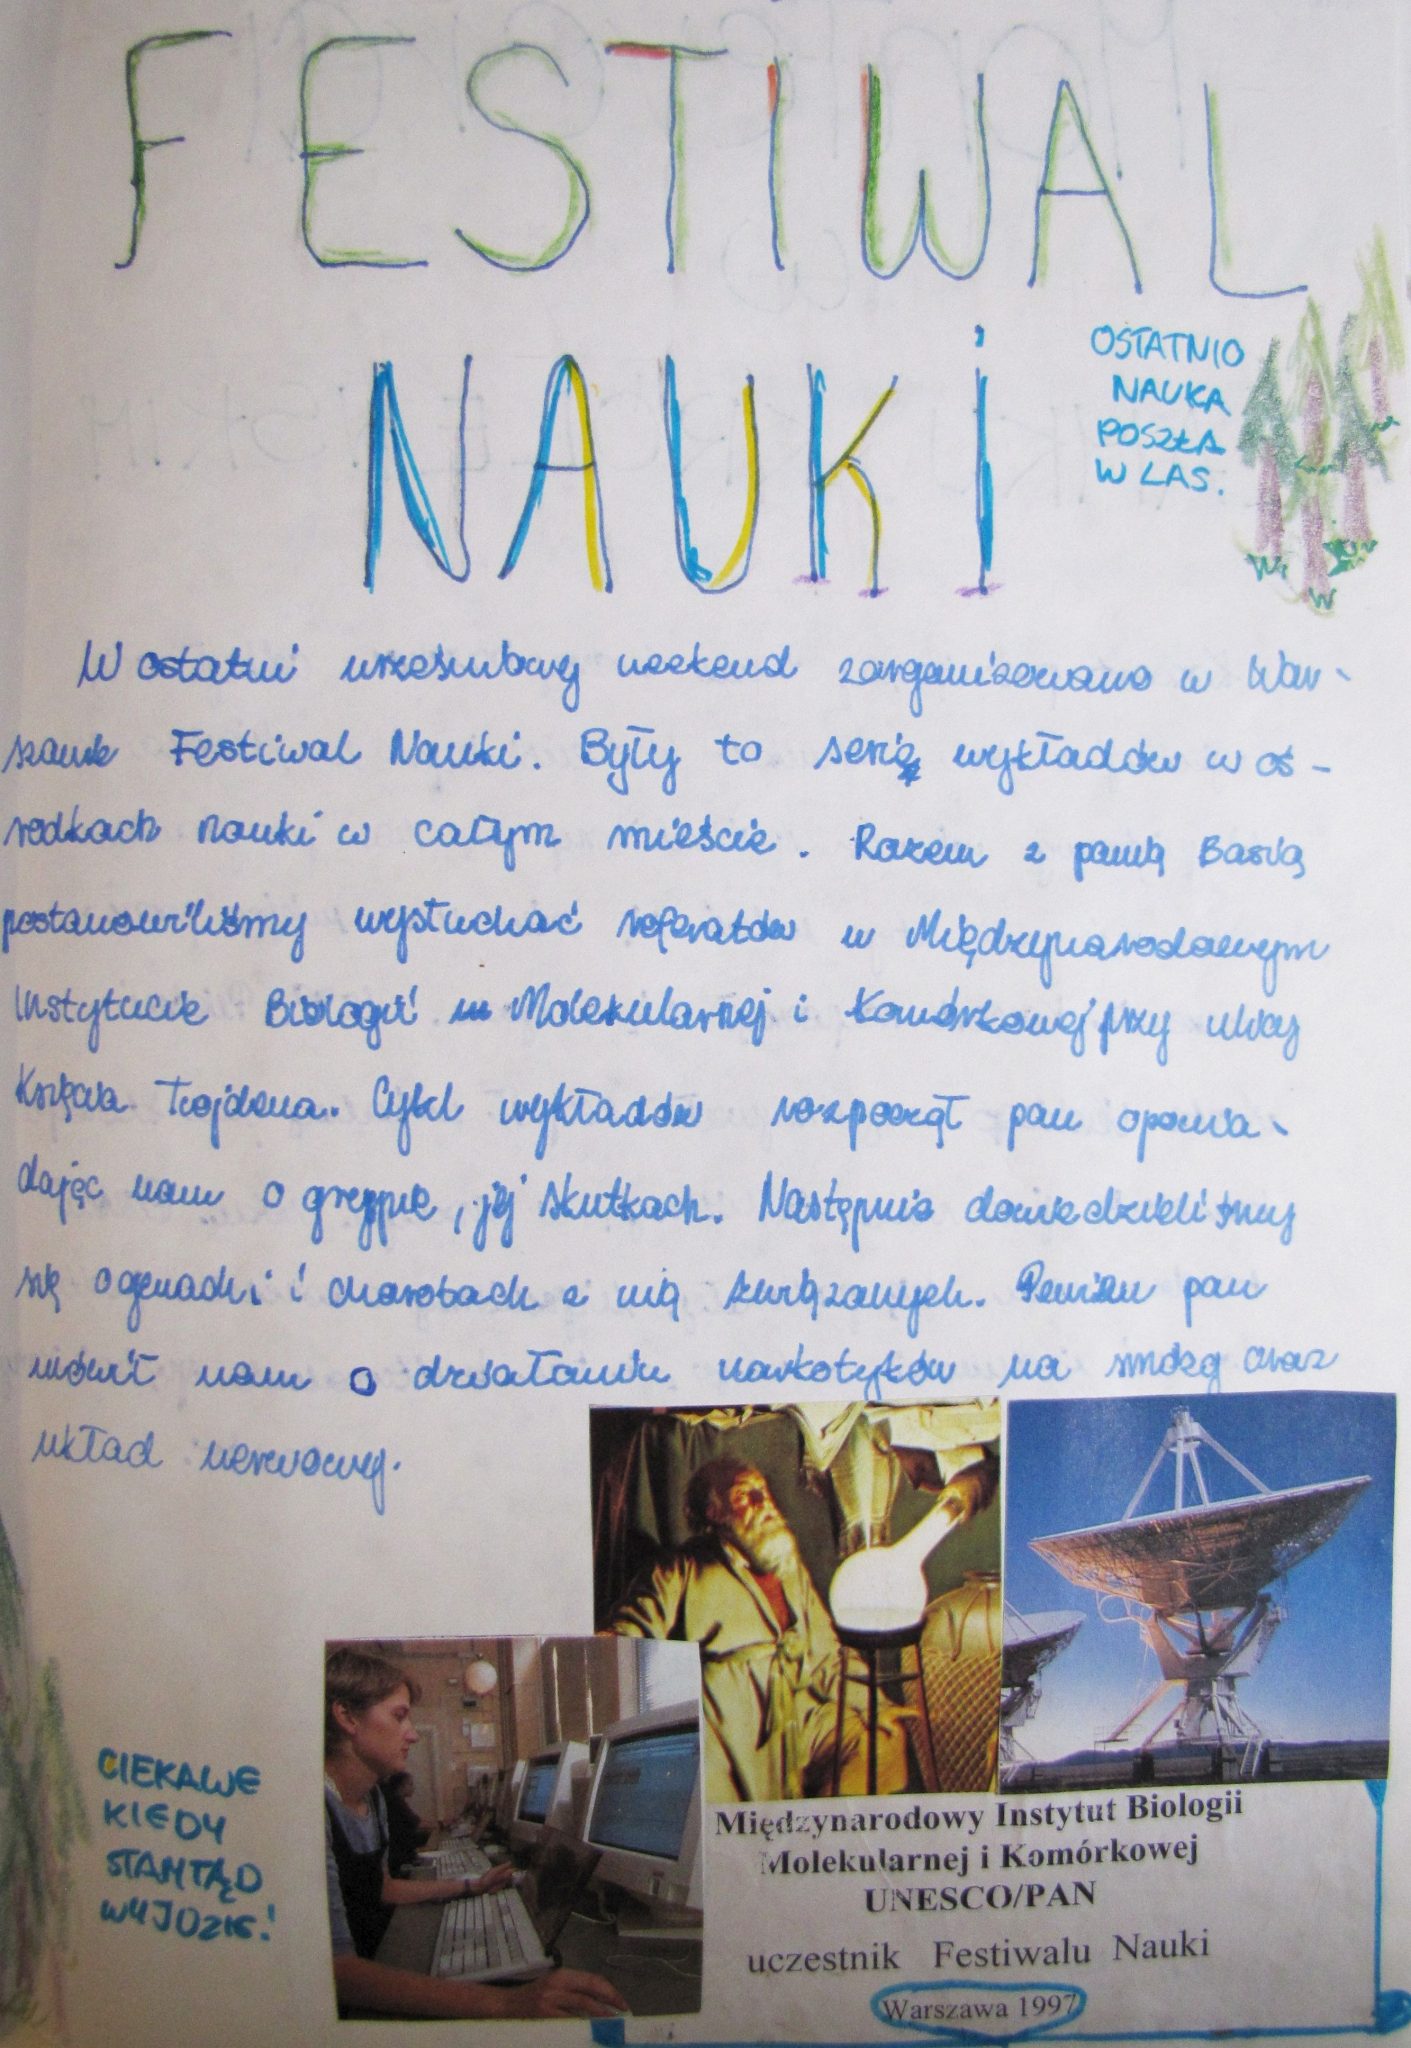 FESTIWAL
NAUKI
OSTATNIO
NAUKA
POSZŁA
W LAS.
W ostatni wrześniowy weekend zorganizowano w War-
szawie Festiwal Nauki. Były to serię wykładów w oś-
rodkach nauki w całym mieście. Razem z panią Basią
postanowiliśmy wysłuchać referatów w Międzynarodowym
Instytucie Biologii Molekularnej i Komórkowej przy ulicy
Księcia Trojdena. Cykl wykładów rozpoczął pan opowia-
dając nam o grypie, jej skutkach. Następnie dowiedzieliśmy
się o genach i chorobach z nią związanych. Pewien pan
mówił nam o działaniu narkotyków na mózg oraz
układ nerwowy.
CIEKAWE
KIEDY
STAMTĄD
WYJDZIE!
Międzynarodowy Instytut Biologii
Molekularnej i Komórkowej
UNESCO/PAN
uczestnik Festiwalu Nauki
Warszawa 1997